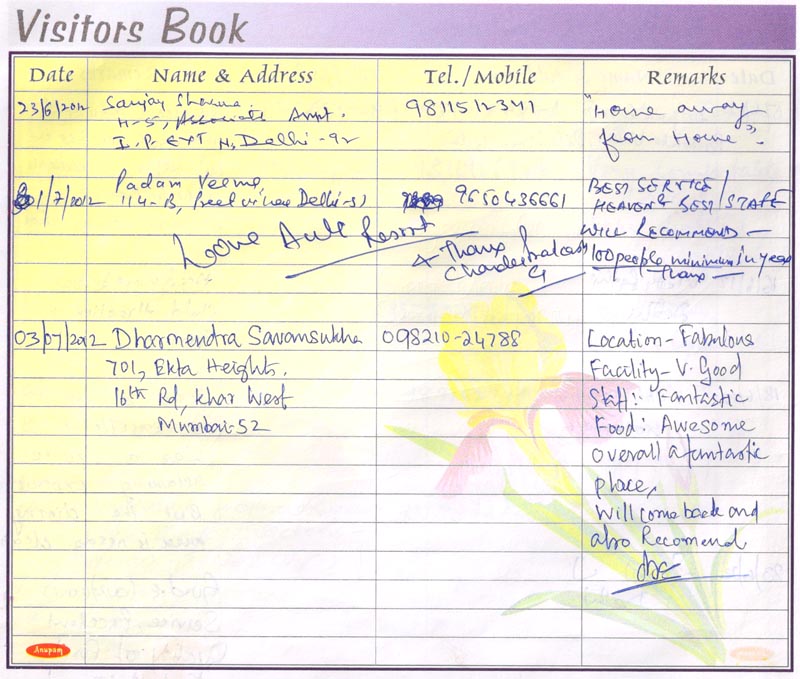 Visitors Book
Date Name & Address Tel./Mobile Remarks
23/6/2012 Sanjay Sharma. 9811512341 "Home away
H-5, Associate Apmt. from Home".
I.P. EXT N. Delhi-92
1/7/2012 Padam Veerma, 9650436661 BEST SERVICE/
114-B, Preet vihar Delhi-51 HEAVEN & BEST/STAFF
WILL RECOMMEND —
Love Ault Resort + Thanx 100 people minimum in year
Thanx —
03/07/2012 Dharmendra Savansukha 098210-24788 Location- Fabulous
701, Ekta Heights. Facility- V. Good
16th Rd, Khar West Staff:- Fantastic
Mumbai-52 Food: Awesome
Overall a fantastic
place,
Will come back and
also Recomend
Anupam